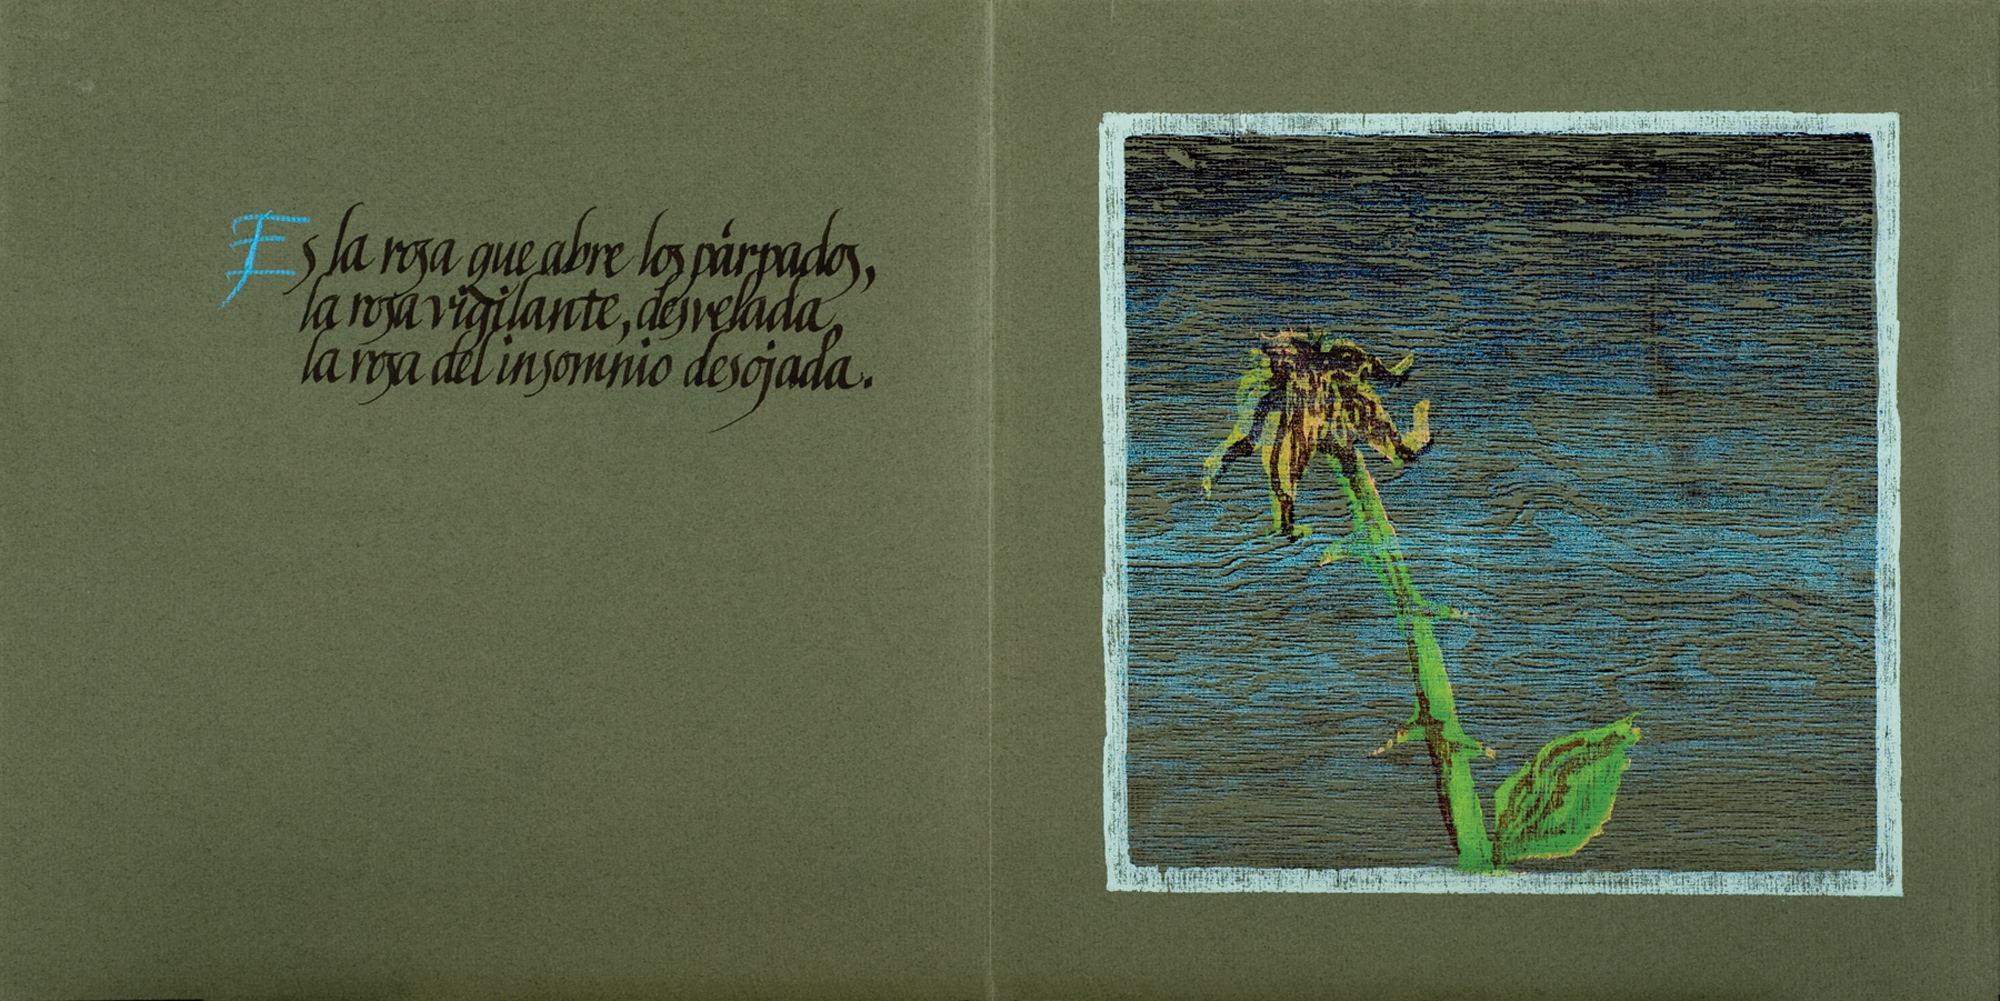 Es la rosa que abre los párpados,
la rosa vigilante, desvelada,
la rosa del insomnio desojada.